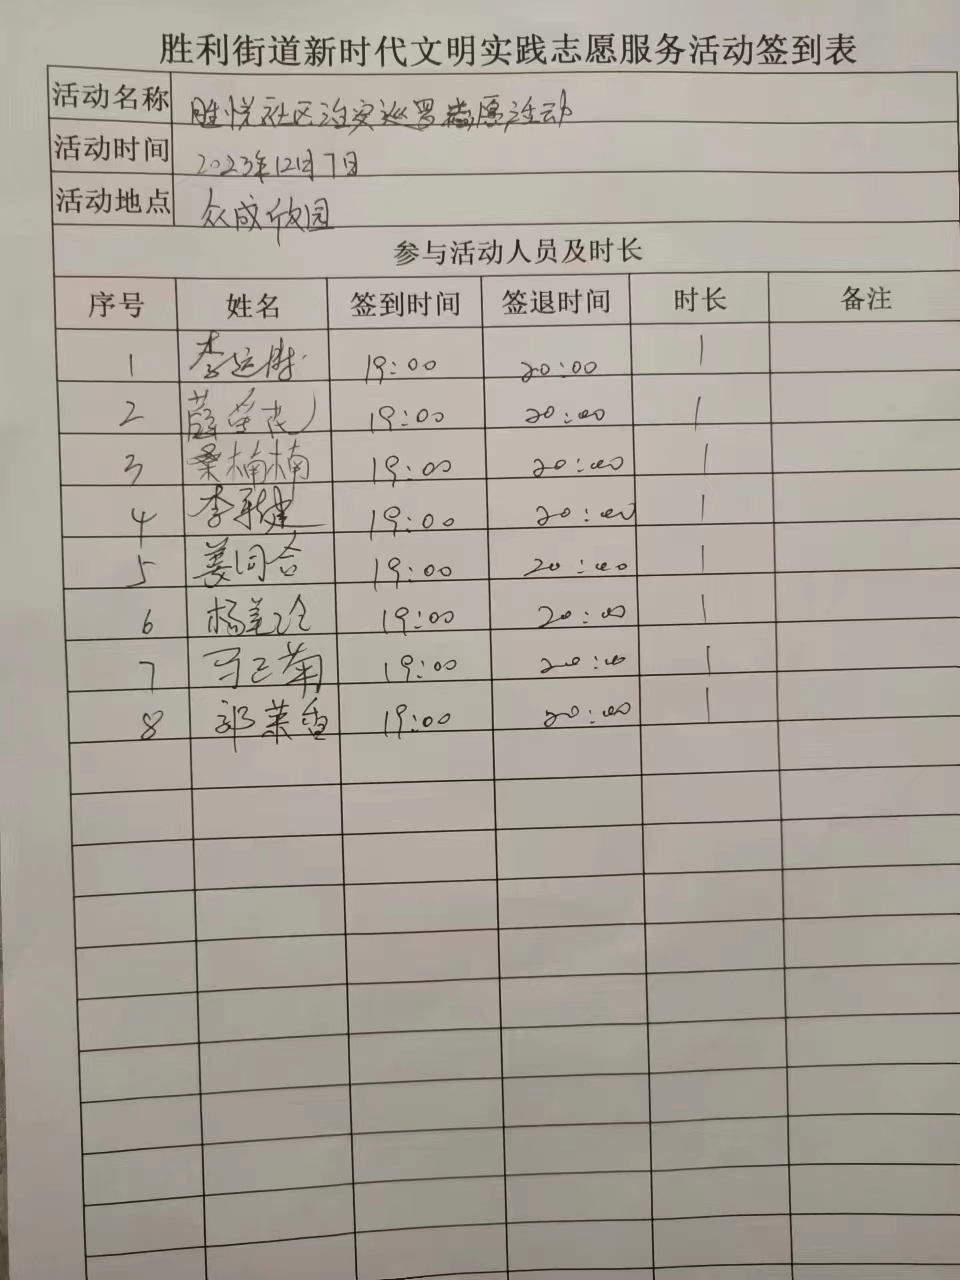 胜利街道新时代文明实践志愿服务活动签到表
活动名称 胜悦社区治安巡逻志愿活动
活动时间 2023年12月7日
活动地点 众成欣园
参与活动人员及时长
序号 姓名 签到时间 签退时间 时长 备注
1 李运胜 19:00 20:00 1
2 薛 19:00 20:00 1
3 桑楠楠 19:00 20:00 1
4 李 19:00 20:00 1
5 姜同合 19:00 20:00 1
6 杨美玲 19:00 20:00 1
7 菊 19:00 20:00 1
8 郭莱香 19:00 20:00 1